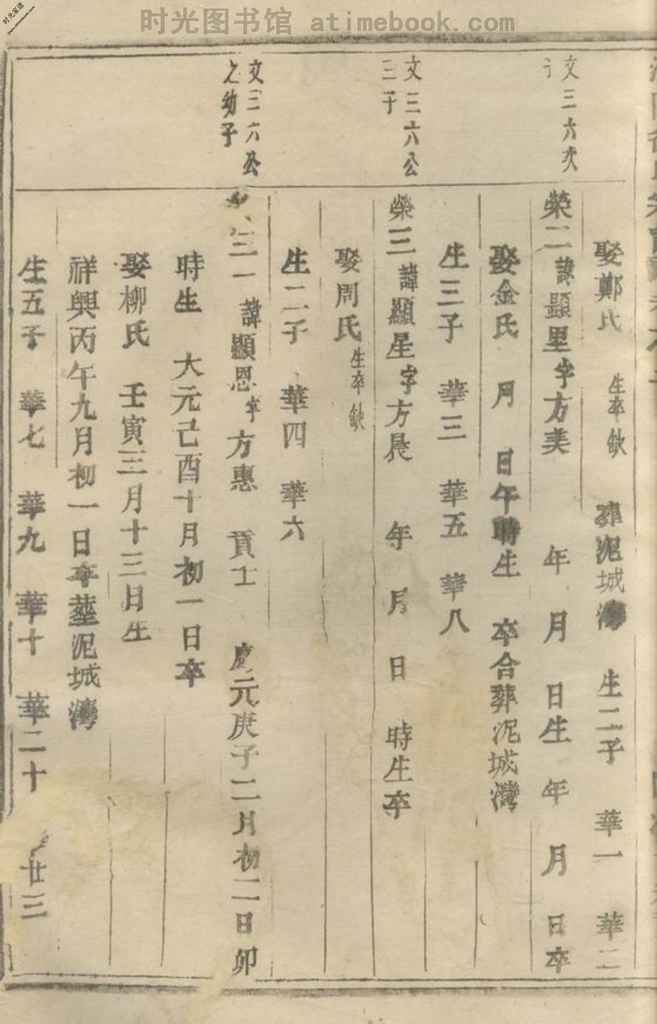 时光图书馆 atimebook.com
娶鄭氏 生卒缺 葬泥城灣 生二子 華一 華二
文三六次
榮二 諱顯里 字方美 年 月 日生 年 月 日卒
娶金氏 月 日午時生 卒合葬泥城灣
生三子 華三 華五 華八
文三六公
三子
榮三 諱顯星 字方晨 年 月 日 時生卒
娶周氏 生卒缺
生二子 華四 華六
文三六公
之幼子
三一 諱顯恩 字方惠 貢士 慶元庚子二月初二日卯
時生 大元己酉十月初一日卒
娶柳氏 壬寅三月十三日生
祥興丙午九月初一日卒塟泥城灣
生五子 華七 華九 華十 華二十 廿三